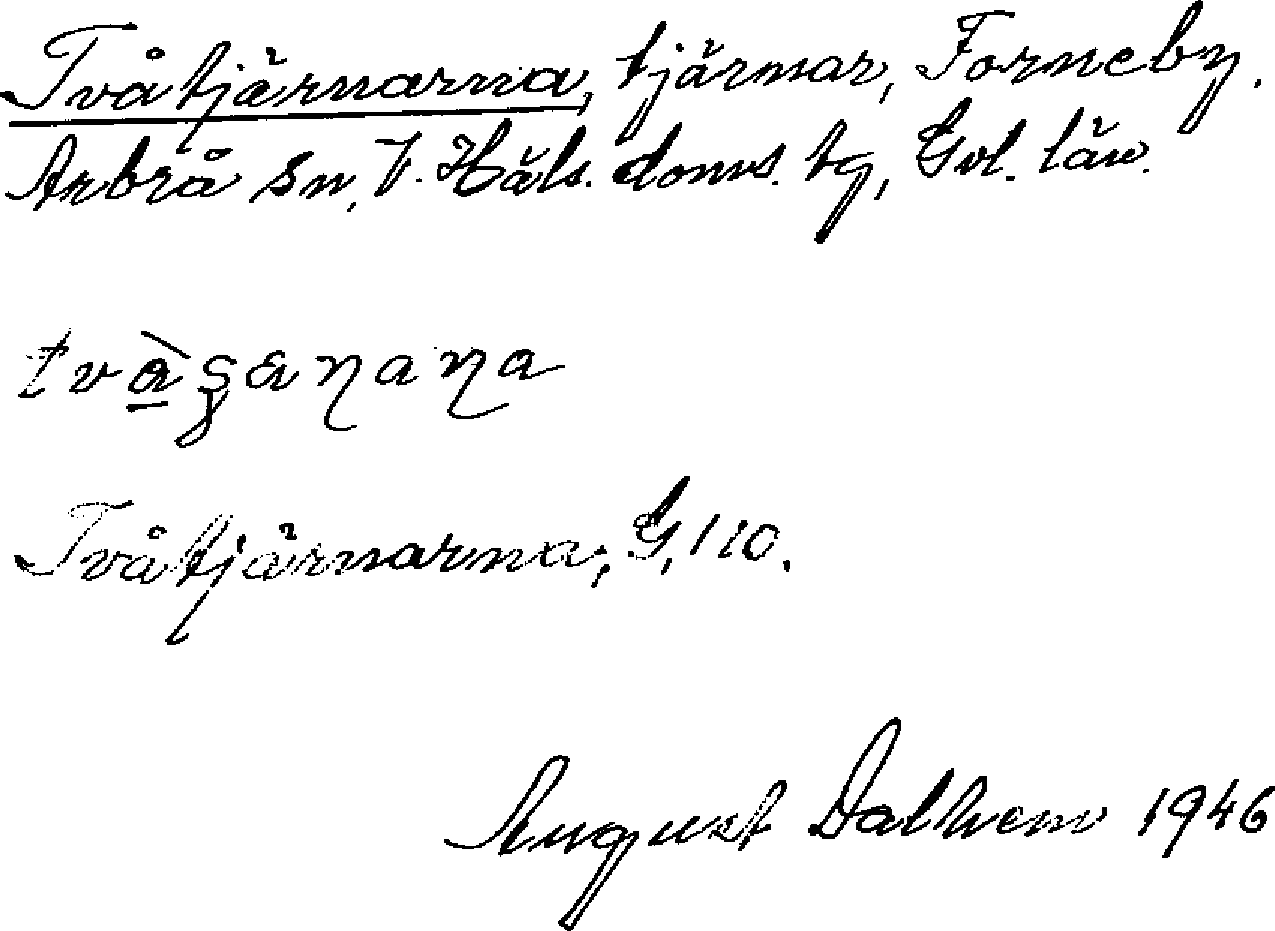 Tvåtjärnarna, tjärnar, Forneby.
Arbrå sn, V. Häls. doms. tg, Gvl. län.
Tvåtjärnarna, G, 110.
August Dalhem 1946